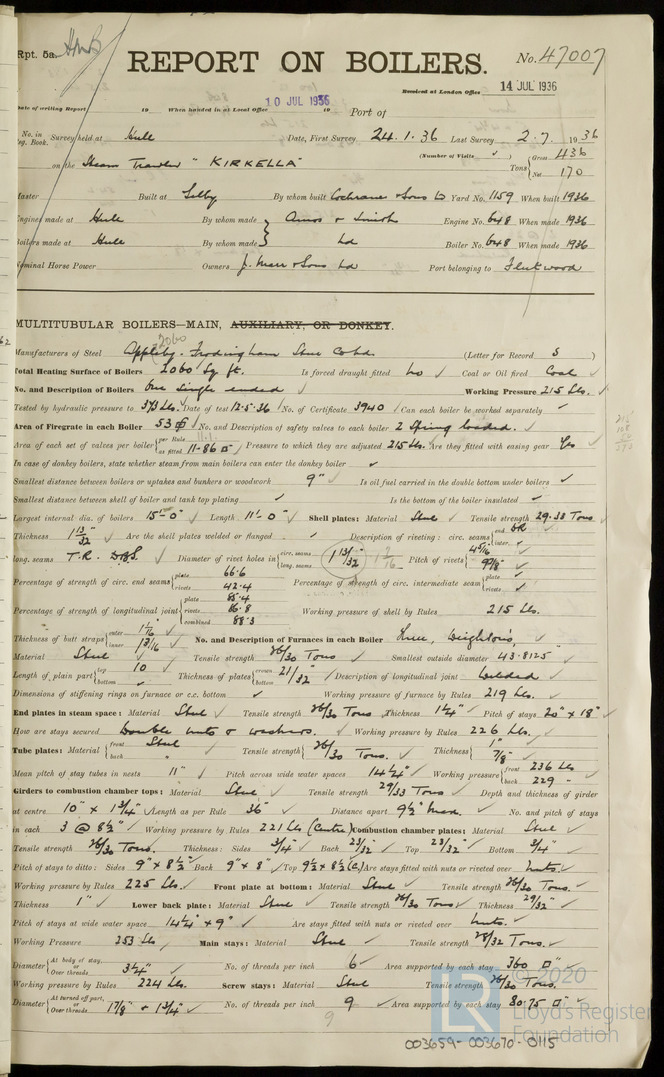 Rpt. 5a.
REPORT ON BOILERS.
No. 47007
Received at London Office 14 JUL 1936
Date of writing Report 19 When handed in at Local Office 10 JUL 1936 19 Port of
No. in Reg. Book. Survey held at Hull Date, First Survey 24.1.36 Last Survey 2.7. 1936
on the Steam Trawler "KIRKELLA" (Number of Visits ) Tons { Gross 436 Net 170
Master Built at Selby By whom built Cochrane & Sons Ld Yard No. 1159 When built 1936
Engines made at Hull By whom made Amos & Smith Engine No. 648 When made 1936
Boilers made at Hull By whom made Ld Boiler No. 648 When made 1936
Nominal Horse Power Owners J. Marr & Sons Ld Port belonging to Fleetwood
MULTITUBULAR BOILERS—MAIN, AUXILIARY, OR DONKEY.
2060
Manufacturers of Steel Appleby-Frodingham Steel Co Ltd. (Letter for Record S )
Total Heating Surface of Boilers 2060 sq ft. Is forced draught fitted No Coal or Oil fired Coal
No. and Description of Boilers One single ended Working Pressure 215 Lbs.
Tested by hydraulic pressure to 373 Lbs. Date of test 12.5.36 No. of Certificate 3940 Can each boiler be worked separately
Area of Firegrate in each Boiler 53 No. and Description of safety valves to each boiler 2 Spring loaded.
Area of each set of valves per boiler { per Rule 11.1 as fitted 11.86 □" Pressure to which they are adjusted 215 Lbs. Are they fitted with easing gear Yes
In case of donkey boilers, state whether steam from main boilers can enter the donkey boiler
Smallest distance between boilers or uptakes and bunkers or woodwork 9" Is oil fuel carried in the double bottom under boilers
Smallest distance between shell of boiler and tank top plating Is the bottom of the boiler insulated
Largest internal dia. of boilers 15'-0" Length 11'-0" Shell plates: Material Steel Tensile strength 29-33 Tons
Thickness 1 13/32 Are the shell plates welded or flanged Description of riveting: circ. seams { end DR inter.
long. seams T.R. D.B.S. Diameter of rivet holes in { circ. seams long. seams 1 13/32 Pitch of rivets { 4 5/16 9 7/8"
Percentage of strength of circ. end seams { plate 66.6 rivets 42.4 Percentage of strength of circ. intermediate seam { plate rivets
Percentage of strength of longitudinal joint { plate 85.4 rivets 86.8 combined 88.3 Working pressure of shell by Rules 215 Lbs.
Thickness of butt straps { outer 1 1/16 inner 1 3/16 No. and Description of Furnaces in each Boiler Three, Deighton's,
Material Steel Tensile strength 26/30 Tons Smallest outside diameter 43.8125"
Length of plain part { top 10 bottom Thickness of plates { crown bottom 21/32" Description of longitudinal joint Welded
Dimensions of stiffening rings on furnace or c.c. bottom Working pressure of furnace by Rules 219 Lbs.
End plates in steam space: Material Steel Tensile strength 26/30 Tons Thickness 1 1/4" Pitch of stays 20" x 18"
How are stays secured Double nuts & washers. Working pressure by Rules 226 Lbs.
Tube plates: Material { front Steel back " Tensile strength { 26/30 Tons. Thickness { 1" 7/8"
Mean pitch of stay tubes in nests 11" Pitch across wide water spaces 14 1/4" Working pressure { front 236 Lbs back 229 "
Girders to combustion chamber tops: Material Steel Tensile strength 29/33 Tons Depth and thickness of girder
at centre 10" x 1 3/4" Length as per Rule 36" Distance apart 9 1/2" max. No. and pitch of stays
in each 3 @ 8 1/2" Working pressure by Rules 221 Lbs (Centre) Combustion chamber plates: Material Steel
Tensile strength 26/30 Tons. Thickness: Sides 3/4" Back 23/32" Top 23/32" Bottom 3/4"
Pitch of stays to ditto: Sides 9" x 8 1/2" Back 9" x 8" Top 9 1/2 x 8 1/2 (C) Are stays fitted with nuts or riveted over Nuts.
Working pressure by Rules 225 Lbs. Front plate at bottom: Material Steel Tensile strength 26/30 Tons.
Thickness 1" Lower back plate: Material Steel Tensile strength 26/30 Tons Thickness 29/32"
Pitch of stays at wide water space 14 1/4" x 9" Are stays fitted with nuts or riveted over Nuts.
Working Pressure 253 Lbs Main stays: Material Steel Tensile strength 28/32 Tons.
Diameter { At body of stay, or Over threads 3 1/4" No. of threads per inch 6 Area supported by each stay 360 □"
Working pressure by Rules 224 Lbs. Screw stays: Material Steel Tensile strength 26/30 Tons.
Diameter { At turned off part, or Over threads 1 7/8" & 1 3/4" No. of threads per inch 9 Area supported by each stay 80.75 □"
9
© 2020
LR Lloyd's Register
Foundation
003659-003670-0115